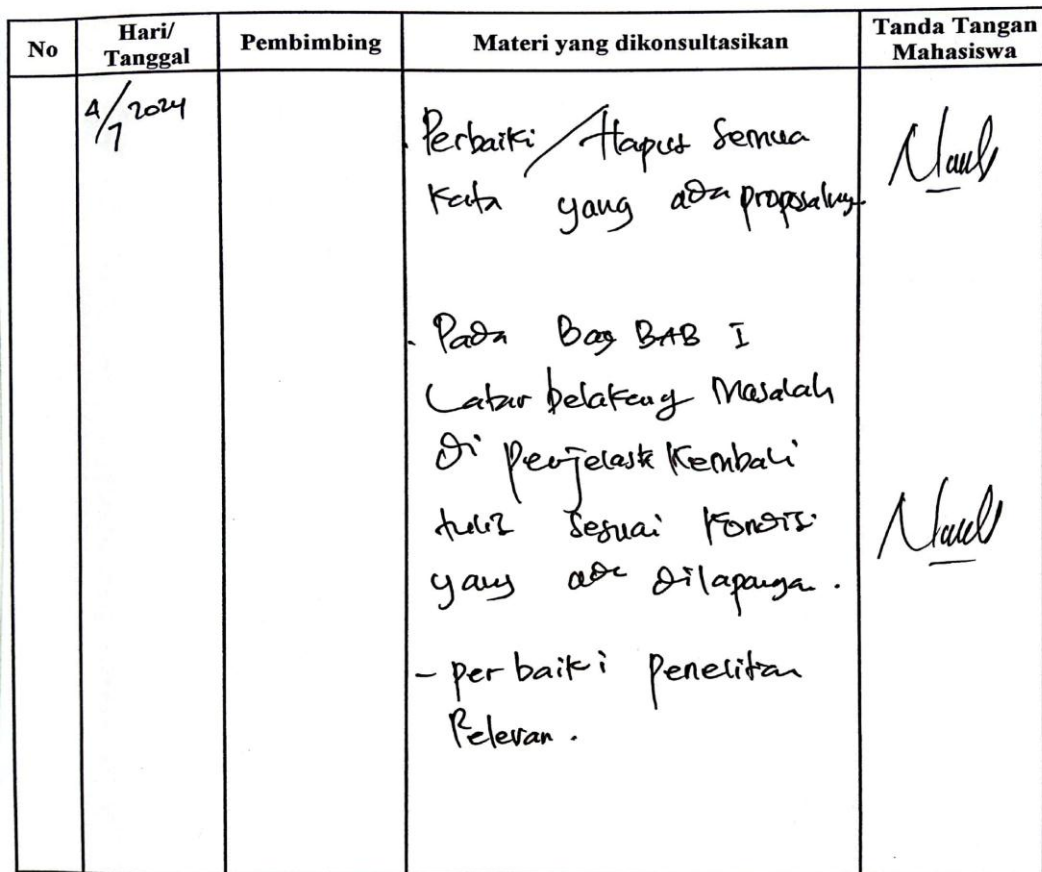 No Hari/ Tanggal Pembimbing Materi yang dikonsultasikan Tanda Tangan Mahasiswa
4/7 2024
Perbaiki / Hapus Semua
Kata yang ada proposalnya.
. Pada Bag BAB I
Latar belakang Masalah
Di Penjelask Kembali
tulis Sesuai Kondisi
yang ada Dilapangan.
- perbaiki penelitian
Relevan.